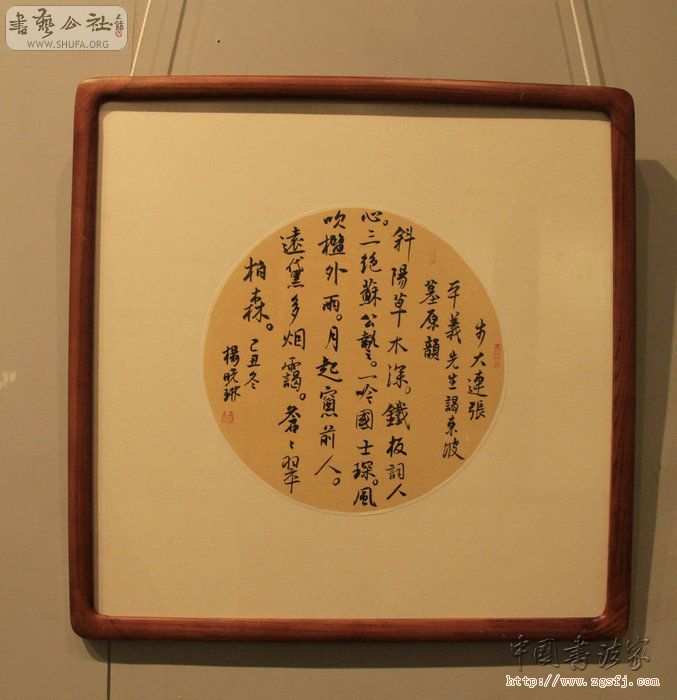 書藝公社
WWW.SHUFA.ORG
步大連張
平義先生謁東坡
墓原韻
斜陽草木深。鐵板詞人
心。三絕蘇公藝。一吟國士琛。風
吹檻外雨。月起窗前人。
遠黛多烟靄。蒼〻翠
柏森。
己丑冬
楊曉琳
中國書法家
http://www.zgsfj.com